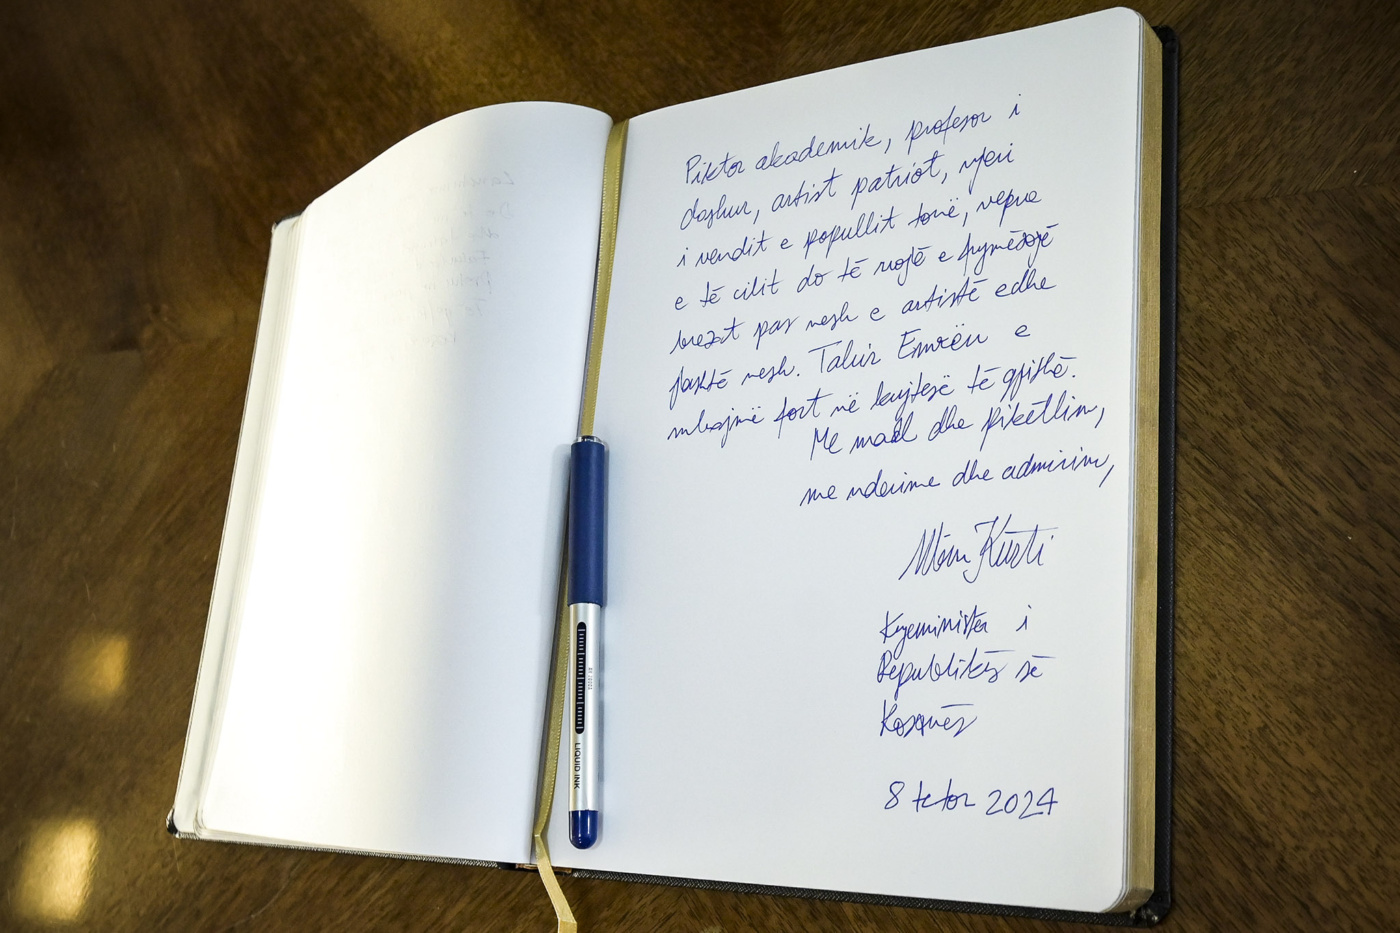 Piktor akademik, profesor i
dashur, artist patriot, njeri
i vendit e popullit tonë, vepra
e të cilit do të rrojë e frymëzojë
brezat pas nesh e artistë edhe
jashtë nesh. Tahir Emrën e
mbajmë fort në kujtesë të gjithë.
Me mall dhe pikëllim,
me nderime dhe admirim,
Albin Kurti
Kryeministër i
Republikës së
Kosovës
8 tetor 2024
LIQUID INK